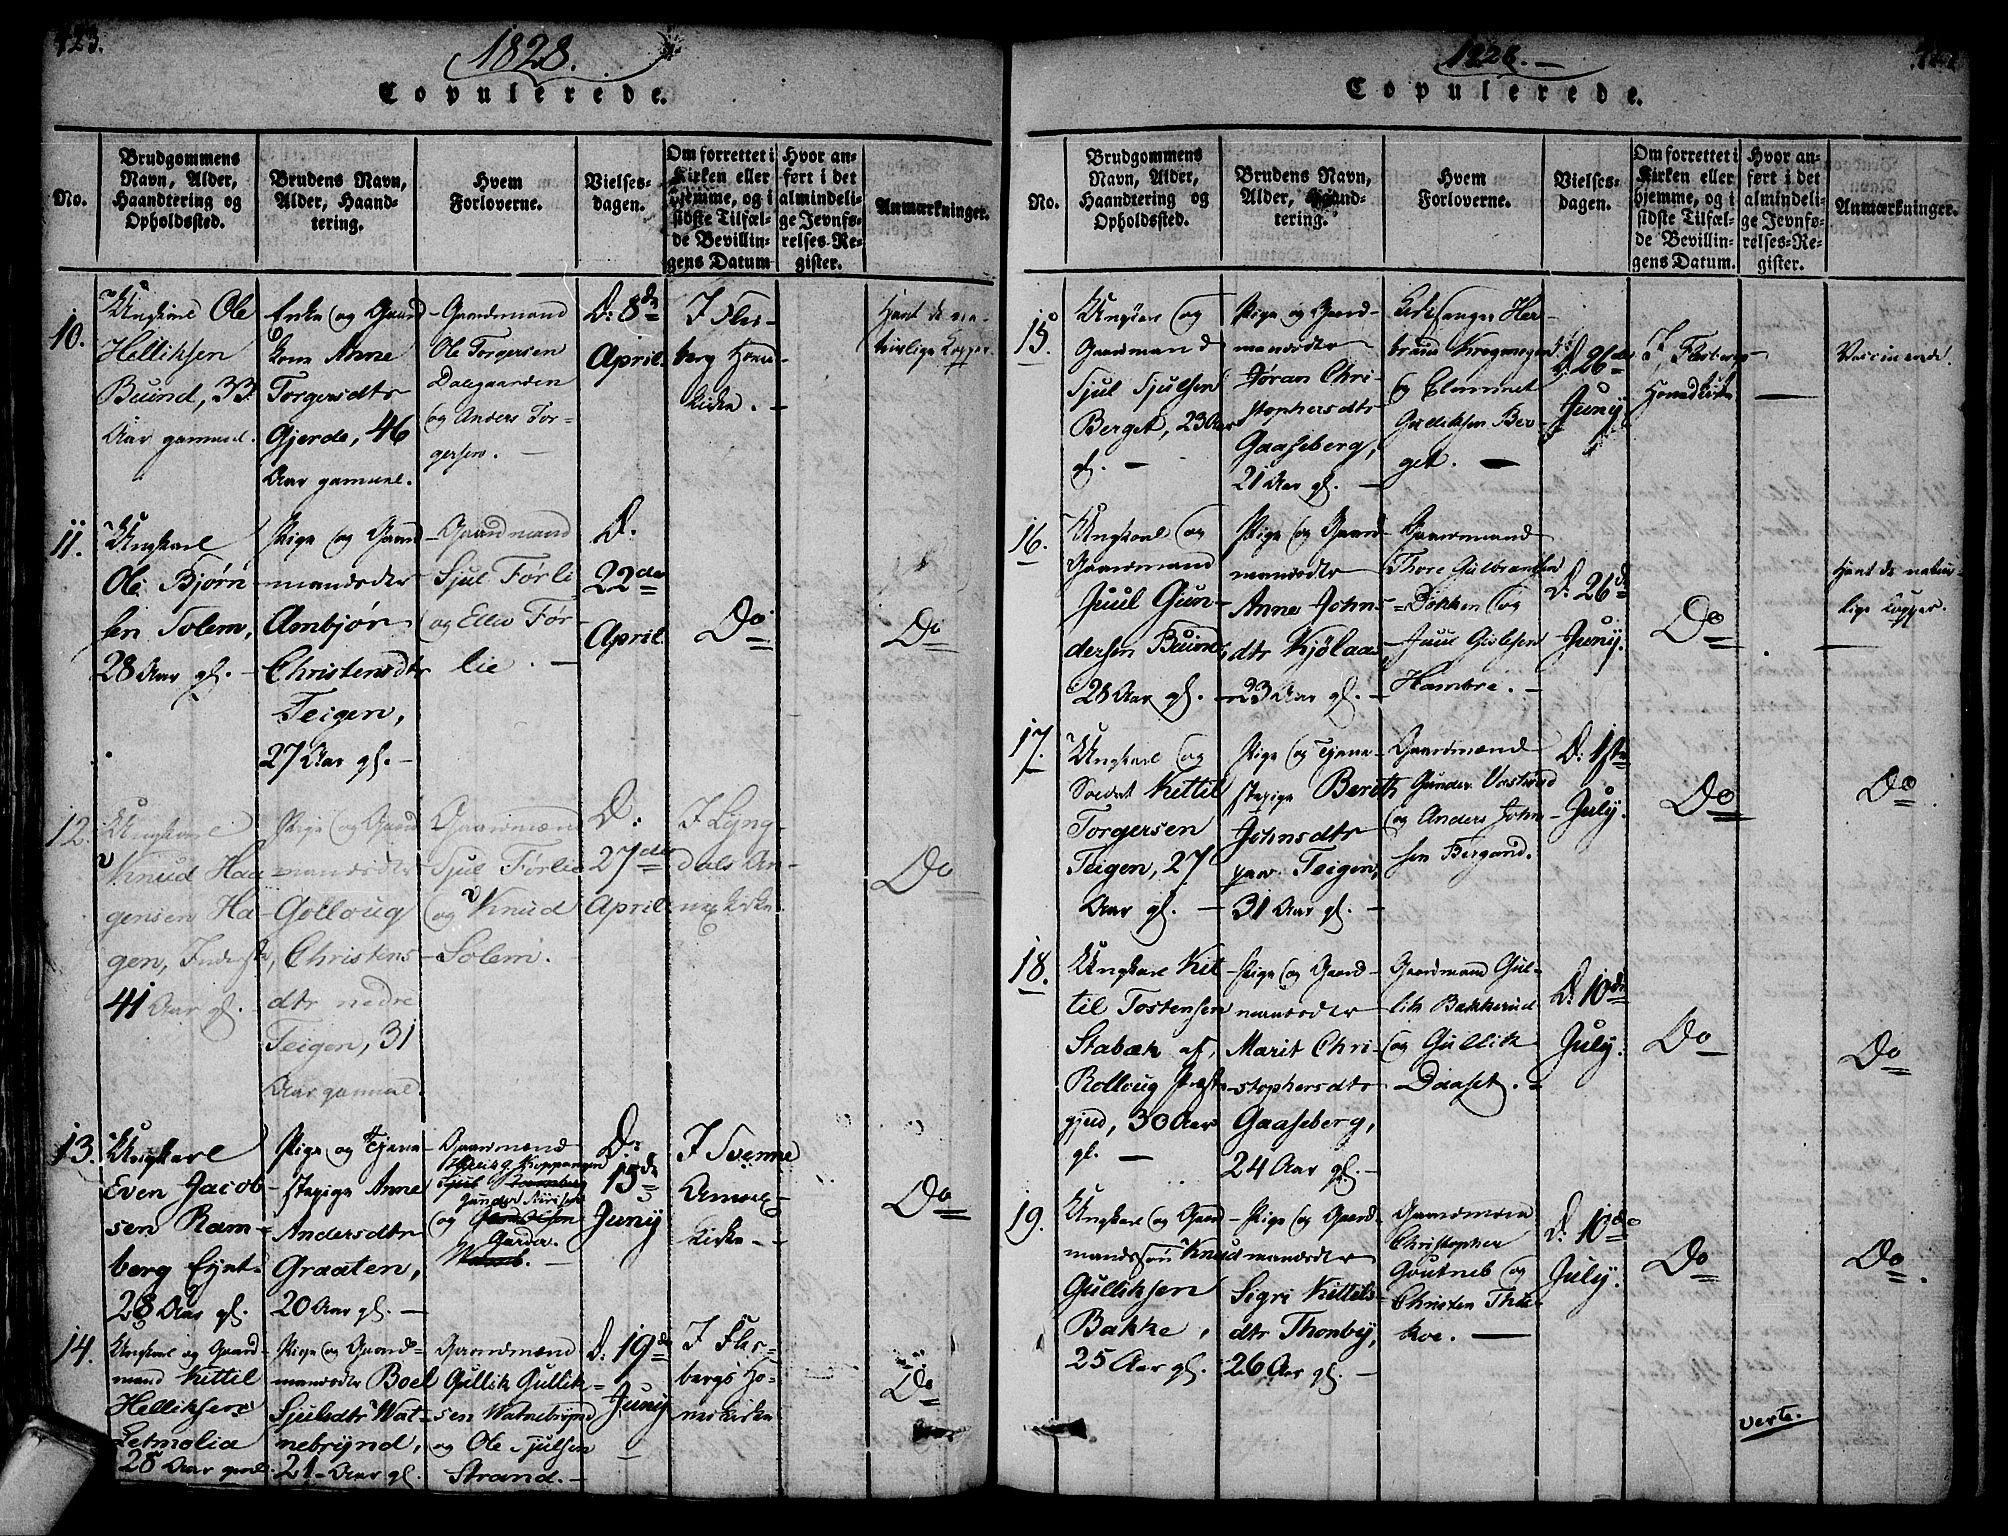 423.
1828.
Copulerede.
No.
Brudgommens
Navn, Alder,
Haandtering og
Opholdssted.
Brudens Navn,
Alder, Haand-
tering.
Hvem
Forloverne.
Vielses-
dagen.
Om forrettet i
Kirken eller
hjemme, og i
sidste Tilfæl-
de Bevillin-
gens Datum
Hvor an-
ført i det
almindeli-
ge Jevnfø-
relses-Re-
gister.
Anmærkninger.
10.
Ungkarl Ole
Helliksen
Buind, 33
Aar gammel.
Enke og Gaard
kone Anne
Torgersdtr
Gjerde, 46
Aar gammel.
Gaardmand
Ole Torgersen
Dalegaarden
og Anders Tor-
gersen. -
D: 8de
April.
I Fles-
berg Hoved-
kirke. -
Havt de na-
turlige Kopper
11.
Ungkarl
Ole Bjørn
sen Solem,
28 Aar gl. -
Pige og Gaard
mandsdtr
Ambjør
Christensdtr
Teigen,
27 Aar gl. -
Gaardmænd
Sjul Førli
og Ellev Før-
lie. -
D.
22de
April.
Do
Do
12.
Ungkarl
Knud Haa
gensen Ha-
gen, Inderste,
41 Aar gl. -
Pige og Gaard
mandsdtr
Golloug
Christens-
dtr nedre
Teigen, 31
Aar gammel.
Gaardmænd
Sjul Førlie
og Knud
Solem.
D:
27de
April.
I Lyng-
dals An-
nexkirke.
Do
13.
Ungkarl
Even Jacob
sen Ram-
berg Eynt-
28 Aar gl.
Pige og Tjene
stepige Anne
Andersdtr
Graaten,
20 Aar gl. -
Gaardmænd
Koppangen
og
Garder.
D:
15de
Juny
I Svenne
Annex-
kirke -
Do
14.
Ungkarl og Gaard
mand Kittil
Helliksen
Letmolia
28 Aar gml.
Pige og Gaard-
mandsdtr Boel
Sjulsdtr Wat-
nebrynd,
21 Aar gl.
Gaardmænd
Gullik Gullik-
sen Watnebrynd
og Ole Sjulsen
Strand. -
D. 19de
Juny
I Fles-
bergs Ho-
vedkirke
Do
1828. -
Copulerede.
No.
Brudgommens
Navn, Alder,
Haandtering og
Opholdssted.
Brudens Navn,
Alder, Haand-
tering.
Hvem
Forloverne.
Vielses-
dagen.
Om forrettet i
Kirken eller
hjemme, og i
sidste Tilfæl-
de Bevillin-
gens Datum.
Hvor an-
ført i det
almindeli-
ge Jevnfø-
relses-Re-
gister.
Anmærkninger.
15.
Ungkarl og
Gaardmand
Sjul Sjulsen
Berget, 23 Aar
gl. -
Pige og Gaard-
mandsdtr
Jøran Chri-
stophersdtr
Gaaseberg,
21 Aar gl. -
Kirkesanger Her-
brand
og Clemmet
Gulliksen Ber-
get. -
D. 26de
Juny
I Flesbergs
Hovedkirke
-
Vaccinerede.
16.
Ungkarl og
Gaardmand
Juul Gun-
dersen Buind,
28 Aar gl. -
Pige og Gaard
mandsdtr
Anne Johns-
dtr Kjølaas
23 Aar gl. -
Gaardmænd
Thore Gulbransen
Dokken og
Juul Gislesen
Hambre. -
D. 26de
Juny.
Do
Havt de natur-
lige Kopper.
17.
Ungkarl og
Soldat Kittil
Torgersen
Teigen, 27
Aar gl. -
Pige og Tjene-
stepige Berith
Johnsdtr
paa Teigen,
31 Aar gl. -
Gaardmænd
Gunder Vastved
og Anders John
sen Bergand.
D: 1ste
July.
Do
Do
18.
Ungkarl Kit
til Tostensen
Stabæk af
Rolloug Præste
gjed, 30 Aar
gl. -
Pige og Gaard-
mandsdtr
Marit Chri-
stophersdtr
Gaaseberg,
24 Aar gl. -
Gaardmænd Gul-
lik Bakkerud
og Gullik
Daaset. -
D: 10de
July.
Do
Do
19.
Ungkarl og Gaard
mandssøn Knud
Gulliksen
Bakke,
25 Aar gl.
Pige og Gaard
mandsdtr
Sigri Kittels-
dtr Thonby,
26 Aar gl. -
Gaardmænd
Christopher
Goutneb og
Christen
D. 10de
July.
Do
Do
verte.